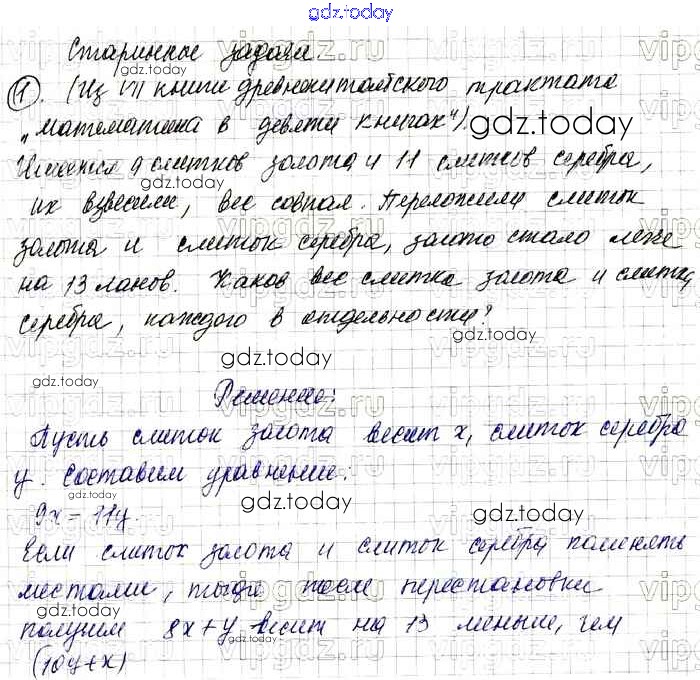 gdz.today
Старинные задачи.
1. (Из VII книги древнекитайского трактата
„Математика в девяти книгах“).
Имеется 9 слитков золота и 11 слитков серебра,
их взвесили, вес совпал. Переложили слиток
золота и слиток серебра, золото стало легче
на 13 ланов. Каков вес слитка золота и слитка
серебра, каждого в отдельности?
Решение:
Пусть слиток золота весит x, слиток серебра
y. Составим уравнение:
9x = 11y.
Если слиток золота и слиток серебра поменять
местами, тогда после перестановки
получим 8x + y весит на 13 меньше, чем
(10y + x)